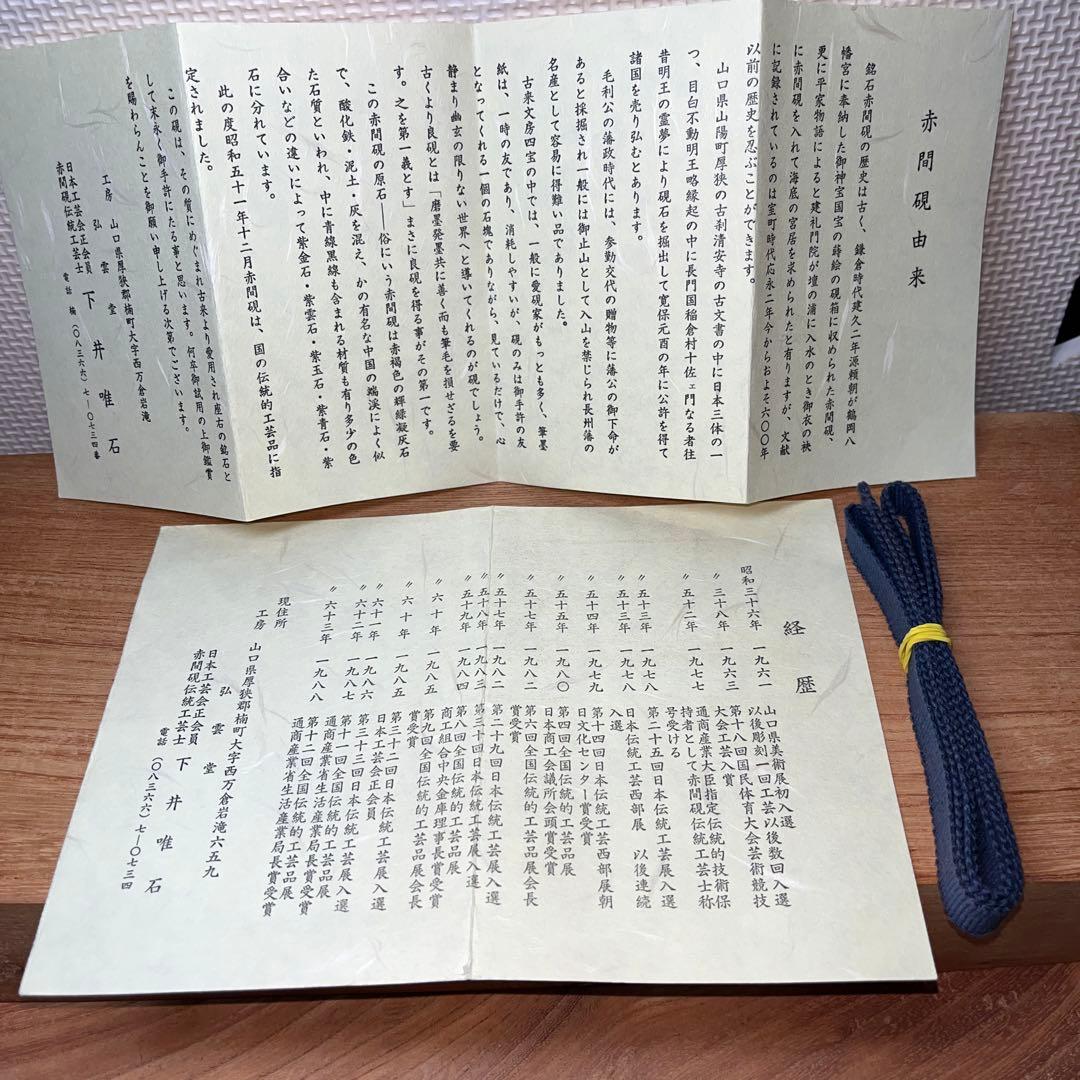 赤間硯由来
銘石赤間硯の歴史は古く、鎌倉時代建久二年源頼朝が鶴岡八
幡宮に奉納した御神宮国宝の蒔絵の硯箱に収められた赤間硯、
更に平家物語によると建礼門院が壇の浦に入水のとき御衣の袂
に赤間硯を入れて海底の宮居を求められたと有りますが、文献
に記録されているのは室町時代応永二年今からおよそ六〇〇年
以前の歴史を忍ぶことができます。
山口県山陽町厚狭の古刹清安寺の古文書の中に日本三体の一
つ、目白不動明王略縁起の中に長門国稲倉村十佐ェ門なる者往
昔明王の霊夢により硯石を掘出して寛保元酉の年に公許を得て
諸国を売り弘むとあります。
毛利公の藩政時代には、参勤交代の贈物等に藩公の御下命が
あると採掘され一般には御止山として入山を禁じられ長州藩の
名産として容易に得難い品でありました。
古来文房四宝の中では、一般に愛硯家がもっとも多く、筆墨
紙は、一時の友であり、消耗しやすいが、硯のみは御手許の友
となってくれる一個の石塊でありながら、見ているだけで、心
静まり幽玄の限りない世界へと導いてくれるのが硯でしょう。
古くより良硯とは「磨墨発墨共に善く而も筆毛を損せざるを要
す。之を第一義とす」まさに良硯を得る事がその第一です。
この赤間硯の原石――俗にいう赤間硯は赤褐色の輝緑凝灰石
で、酸化鉄・泥土・灰を混え、かの有名な中国の端渓によく似
た石質といわれ、中に青線黒線も含まれる材質も有り多少の色
合いなどの違いによって紫金石・紫雲石・紫玉石・紫青石・紫
石に分れています。
此の度昭和五十一年十二月赤間硯は、国の伝統的工芸品に指
定されました。
この硯は、その質にめぐまれ古来より愛用され座右の銘石と
して末永く御手許にたる事と思います。何卒御試用の上御鑑賞
を賜わらんことを御願い申し上げる次第でございます。
山口県厚狭郡楠町大字西万倉岩滝
工房 弘雲堂
日本工芸会正会員
赤間硯伝統工芸士 下井唯石
電話 楠(〇八三六六)七―〇七三四番
経歴
昭和三十六年 一九六一 山口県美術展初入選
以後彫刻一回工芸以後数回入選
〃三十八年 一九六三 第十八回国民体育大会芸術競技
大会工芸入賞
〃五十二年 一九七七 通商産業大臣指定伝統的技術保
持者として赤間硯伝統工芸士称
号受ける
〃五十三年 一九七八 第二十五回日本伝統工芸展入選
〃五十三年 一九七八 日本伝統工芸西部展 以後連続
入選
〃五十四年 一九七九 第十四回日本伝統工芸西部展朝
日文化センター賞受賞
〃五十五年 一九八〇 第四回全国伝統的工芸品展
日本商工会議所会頭賞受賞
〃五十七年 一九八二 第六回全国伝統的工芸品展会長
賞受賞
〃五十七年 一九八二 第二十九回日本伝統工芸展入選
〃五十八年 一九八三 第三十回日本伝統工芸展入選
〃五十九年 一九八四 第八回全国伝統的工芸品展
商工組合中央金庫理事長賞受賞
〃六十年 一九八五 第九回全国伝統的工芸品展会長
賞受賞
〃六十年 一九八五 第三十二回日本伝統工芸展入選
日本工芸会正会員
〃六十一年 一九八六 第三十三回日本伝統工芸展入選
〃六十二年 一九八七 第十一回全国伝統的工芸品展
通商産業省生活産業局長賞受賞
〃六十三年 一九八八 第十二回全国伝統的工芸品展
通商産業省生活産業局長賞受賞
現住所
工房 山口県厚狭郡楠町大字西万倉岩滝六五九
弘雲堂
日本工芸会正会員
赤間硯伝統工芸士 下井唯石
電話 (〇八三六六)七―〇七三四